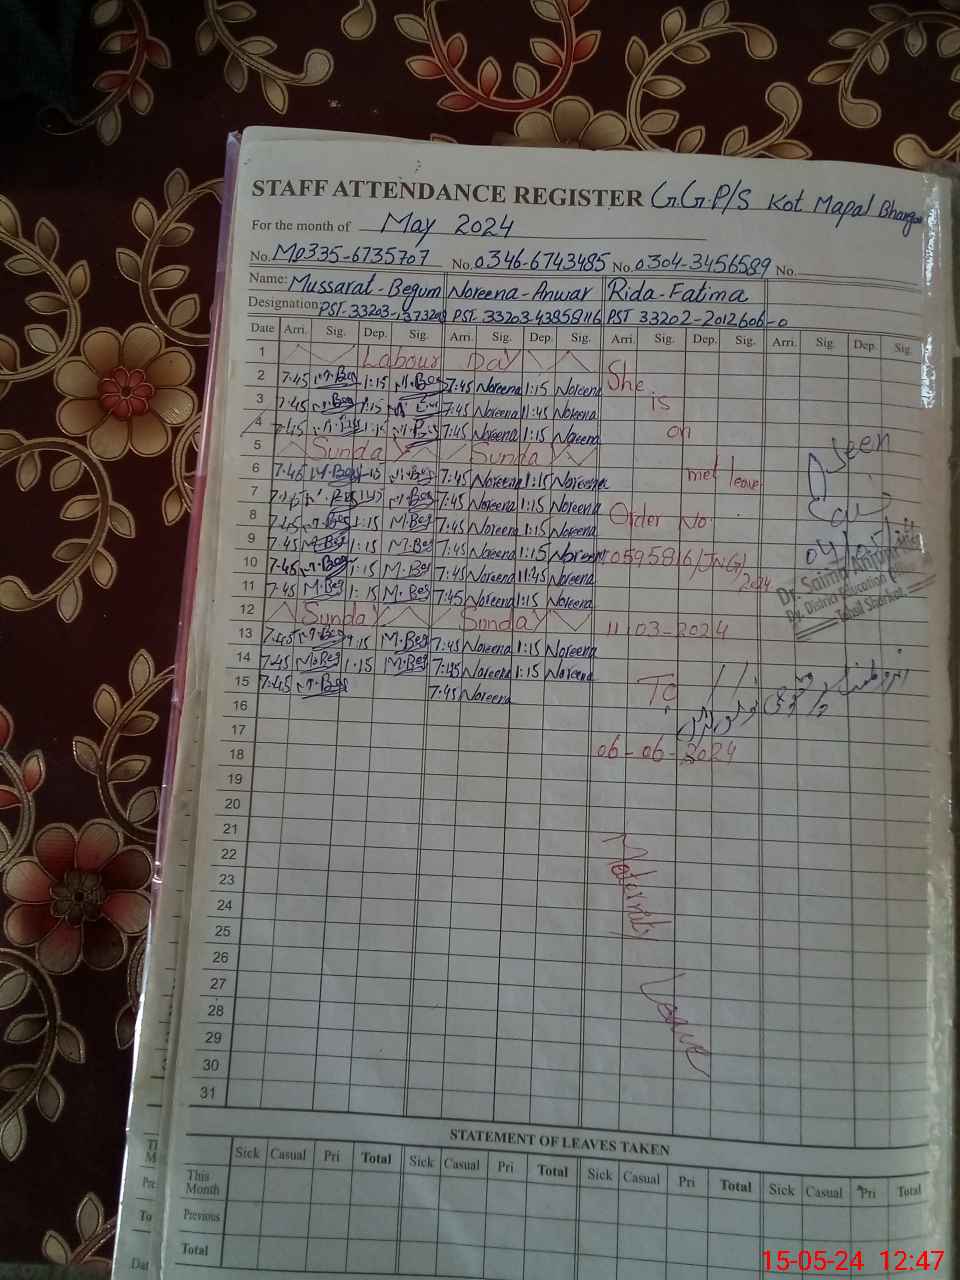 STAFF ATTENDANCE REGISTER G.G.P/S Kot Mapal
For the month of May 2024
No. M0335-6735707 No. 0346-6743485 No. 0304-3456589 No.
Name: Mussarat-Begum Noreena-Anwar Rida-Fatima
Designation: PST-33203- PST 33203-43858116 PST 33202-2012606-0
Date Arri. Sig. Dep. Sig. Arri. Sig. Dep. Sig. Arri. Sig. Dep. Sig. Arri. Sig. Dep. Sig.
1 Labour Day
2 7:45 M.Beg 1:15 M.Beg 7:45 Noreena 1:15 Noreena She
3 7:45 M.Beg 1:15 7:45 Noreena 11:45 Noreena is
4 7:45 1:15 7:45 Noreena 1:15 Noreena on
5 Sunday Sunday Seen
6 7:45 M.Beg 1:15 M.Beg 7:45 Noreena 1:15 Noreena leave
7 M.Beg 7:45 Noreena 1:15 Noreena
8 7:45 M.Beg 1:15 M.Beg 7:45 Noreena 1:15 Noreena Order No.
9 7:45 M.Beg 1:15 M.Beg 7:45 Noreena 1:15 Noreena
10 7:45 M.Beg 1:15 M.Beg 7:45 Noreena 11:45 Noreena 0595816/JNG/
11 7:45 M.Beg 1:15 M.Beg 7:45 Noreena 1:15 Noreena 2024
Dr. Saima Anjum
Dy. District Education
Tehsil Shorkot
12 Sunday Sunday
13 7:45 M.Beg 1:15 M.Beg 7:45 Noreena 1:15 Noreena 11-03-2024
14 7:45 M.Beg 1:15 M.Beg 7:45 Noreena 1:15 Noreena
15 7:45 M.Beg 7:45 Noreena To
16
17
18 06-06-2024
19
20
21
22
23
24
25
26
27
28
29
30
31
Maternity Leave
STATEMENT OF LEAVES TAKEN
Sick Casual Pri Total Sick Casual Pri Total Sick Casual Pri Total Sick Casual Pri Total
This Month
Previous
Total
15-05-24 12:47